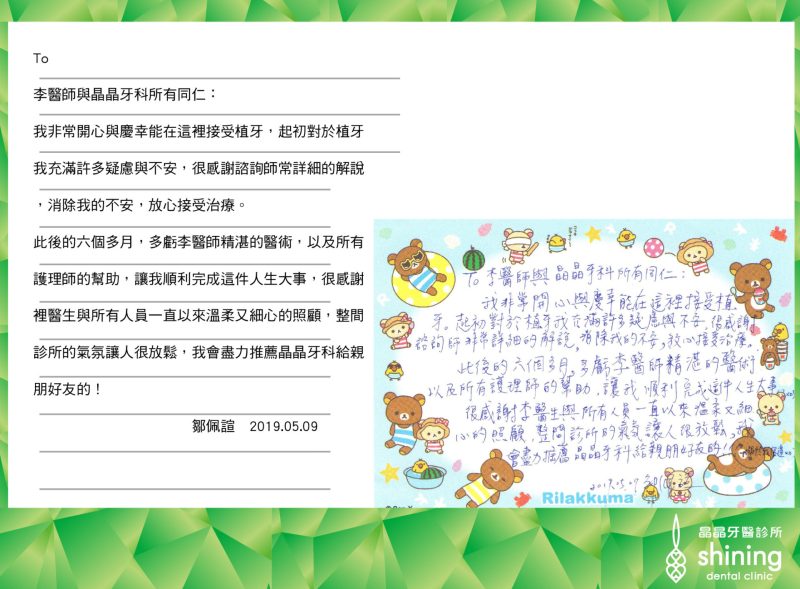 To
李醫師與晶晶牙科所有同仁：
我非常開心與慶幸能在這裡接受植牙，起初對於植牙
我充滿許多疑慮與不安，很感謝諮詢師常詳細的解說
，消除我的不安，放心接受治療。
此後的六個多月，多虧李醫師精湛的醫術，以及所有
護理師的幫助，讓我順利完成這件人生大事，很感謝
裡醫生與所有人員一直以來溫柔又細心的照顧，整間
診所的氣氛讓人很放鬆，我會盡力推薦晶晶牙科給親
朋好友的！
鄒佩誼 2019.05.09
To 李醫師與晶晶牙科所有同仁：
我非常開心與慶幸能在這裡接受植
牙。起初對於植牙我充滿許多疑慮與不安，很感謝
諮詢師非常詳細的解說，消除我的不安，放心接受治療。
此後的六個多月，多虧李醫師精湛的醫術
以及所有護理師的幫助，讓我順利完成這件人生大事
很感謝李醫生與所有人員一直以來溫柔又細
心的照顧，整間診所的氣氛讓人很放鬆，我
會盡力推薦晶晶牙科給親朋好友的！
2019.05.09
Rilakkuma
晶晶牙醫診所
shining
dental clinic